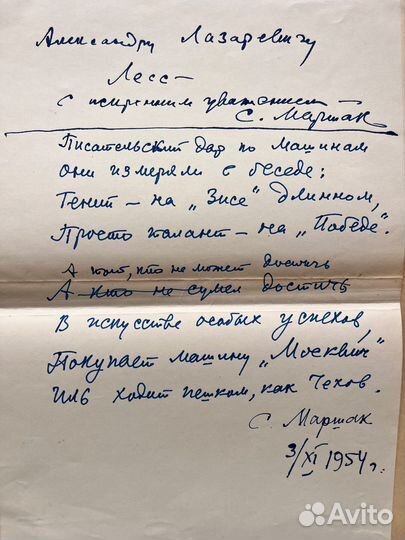 Александру Лазаревичу
Лесс –
с искренним уважением
С. Маршак
Писательский дар по машинам
Они измеряли в беседе:
Гений – на „Зисе“ длинном,
Просто талант – на „Победе“.
А тот, кто не может достичь
А кто не сумел достичь
В искусстве особых успехов,
Покупает машину „Москвич“
Иль ходит пешком, как Чехов.
С. Маршак
3/XI 1954 г.
Avito